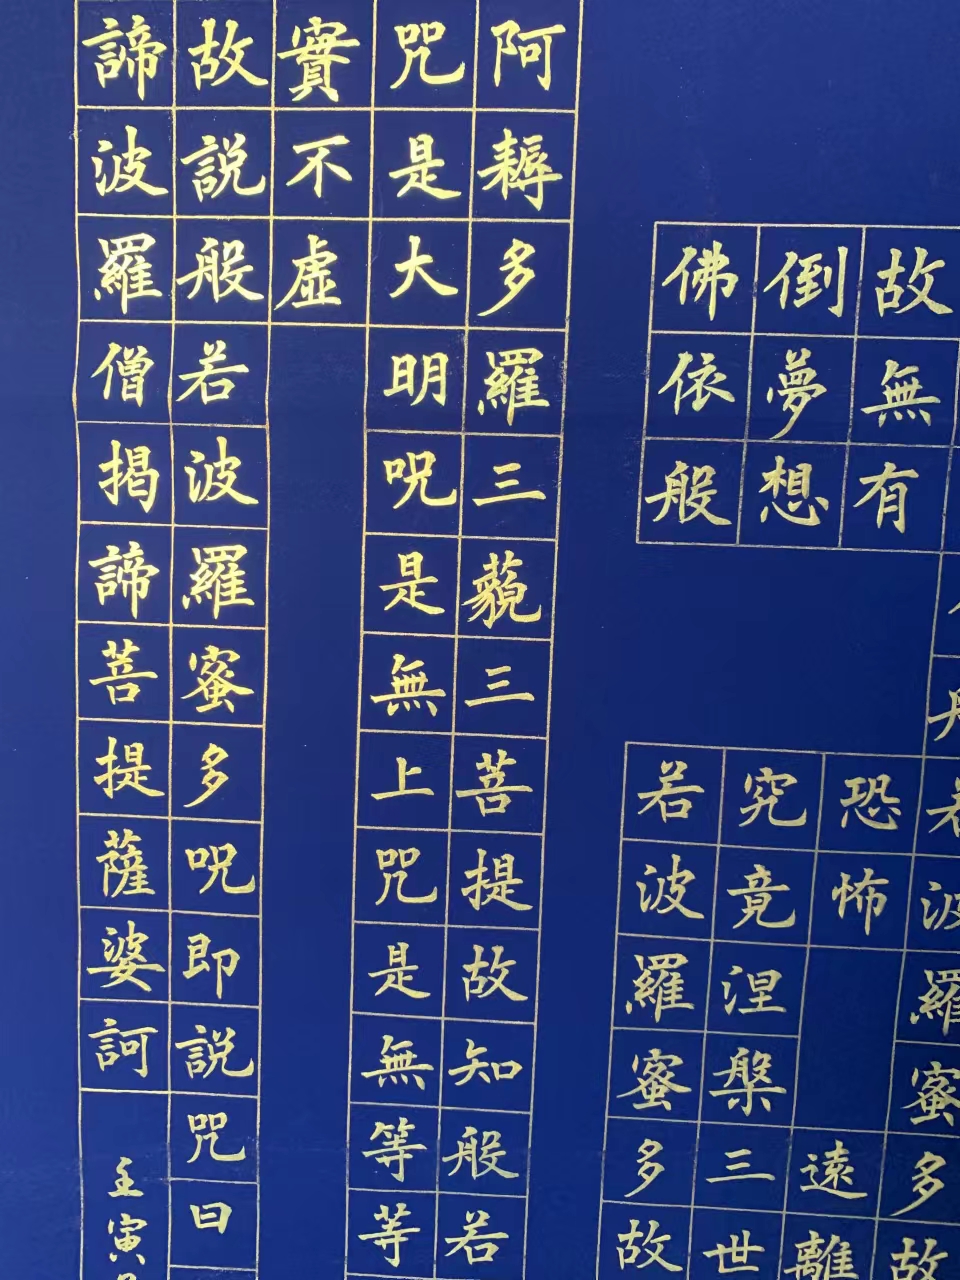 若波羅蜜多故
故無有恐怖遠離
倒夢想究竟涅槃三世
佛依般若波羅蜜多故
阿耨多羅三藐三菩提故知般若
咒是大明呪是無上咒是無等等
實不虛
故說般若波羅蜜多呪即說咒曰
諦波羅僧揭諦菩提薩婆訶
壬寅